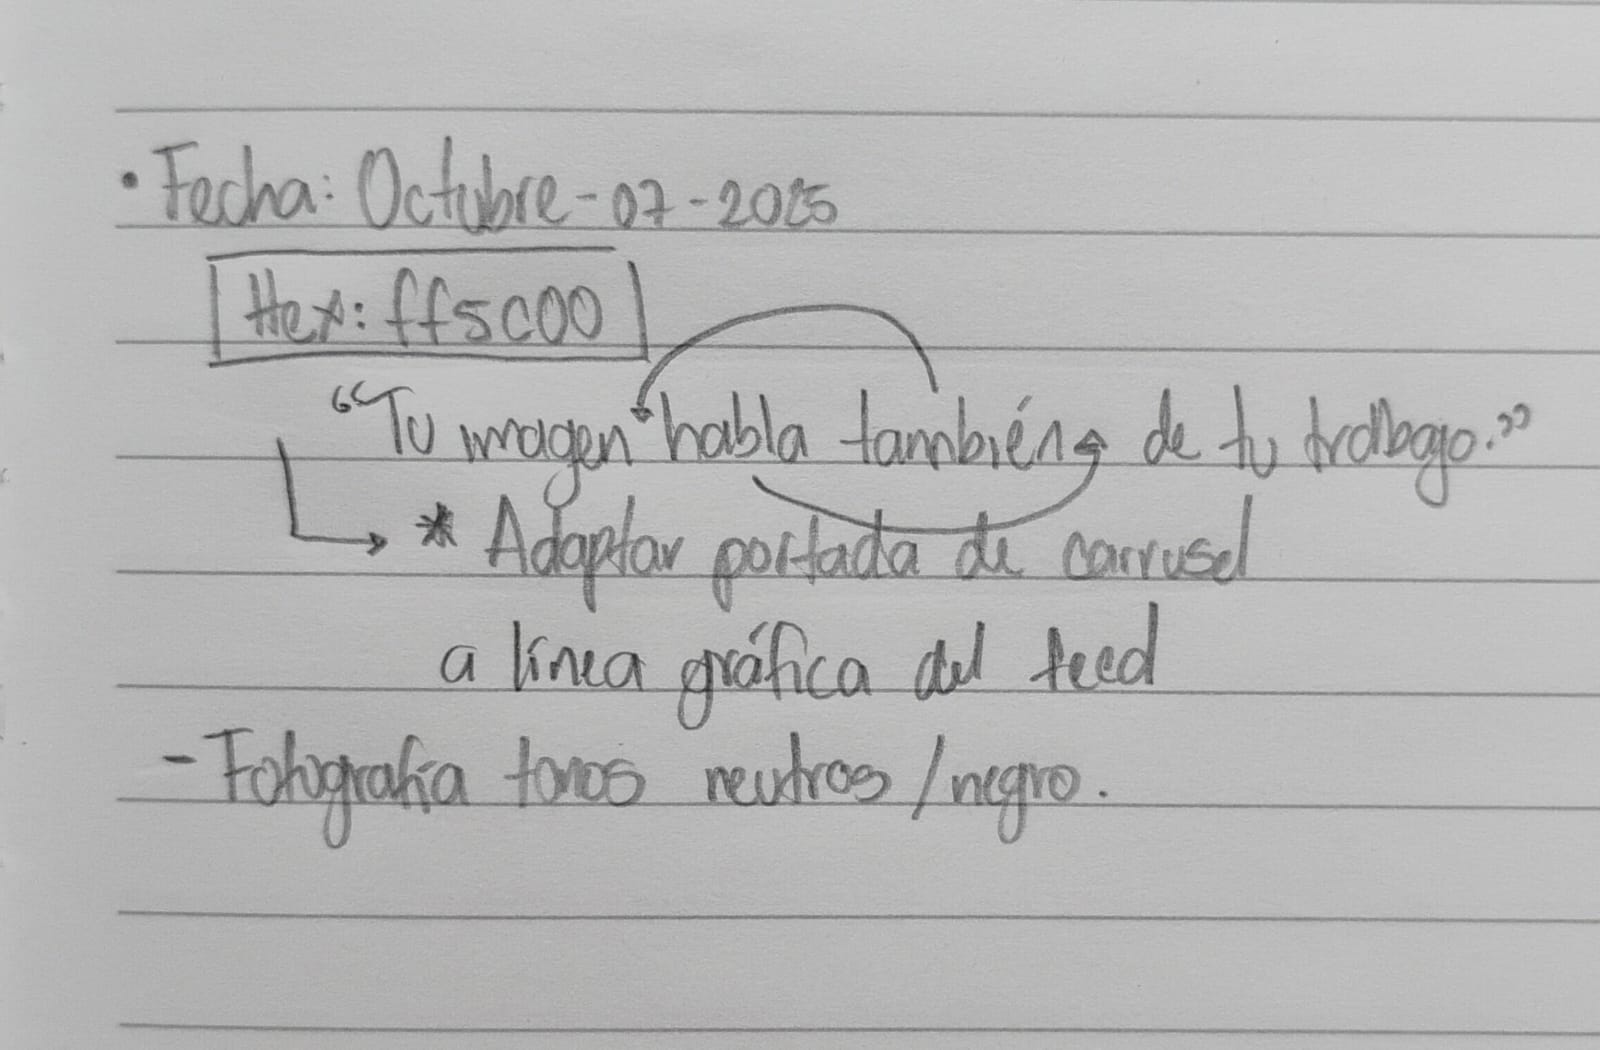 • Fecha: Octubre-07-2025
Hex: ff5c00
“Tu imagen habla también de tu trabajo.”
* Adaptar portada de carrusel
a línea gráfica del feed
- Fotografía tonos neutros/negro.